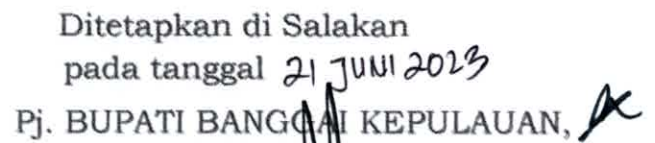 Ditetapkan di Salakan
pada tanggal 21 JUNI 2023
Pj. BUPATI BANGGAI KEPULAUAN,